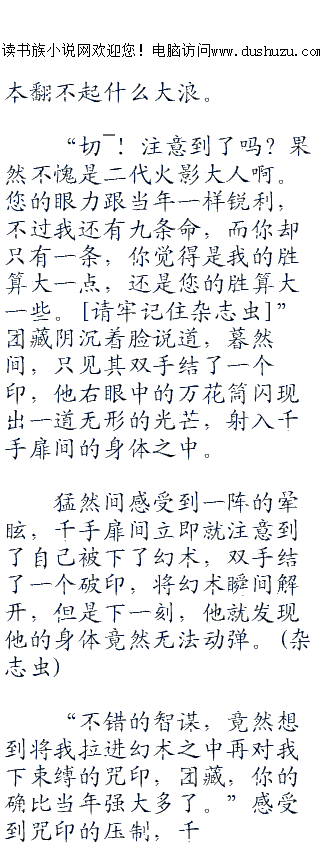 读书族小说网欢迎您！电脑访问www.dushuzu.com
本翻不起什么大浪。
“切ˉ！注意到了吗？果
然不愧是二代火影大人啊。
您的眼力跟当年一样锐利，
不过我还有九条命，而你却
只有一条，你觉得是我的胜
算大一点，还是您的胜算大
一些。[请牢记住杂志虫]”
团藏阴沉着脸说道，蓦然
间，只见其双手结了一个
印，他右眼中的万花筒闪现
出一道无形的光芒，射入千
手扉间的身体之中。
猛然间感受到一阵的晕
眩，千手扉间立即就注意到
了自己被下了幻术，双手结
了一个破印，将幻术瞬间解
开，但是下一刻，他就发现
他的身体竟然无法动弹。(杂
志虫)
“不错的智谋，竟然想
到将我拉进幻术之中再对我
下束缚的咒印，团藏，你的
确比当年强大多了。”感受
到咒印的压制，千